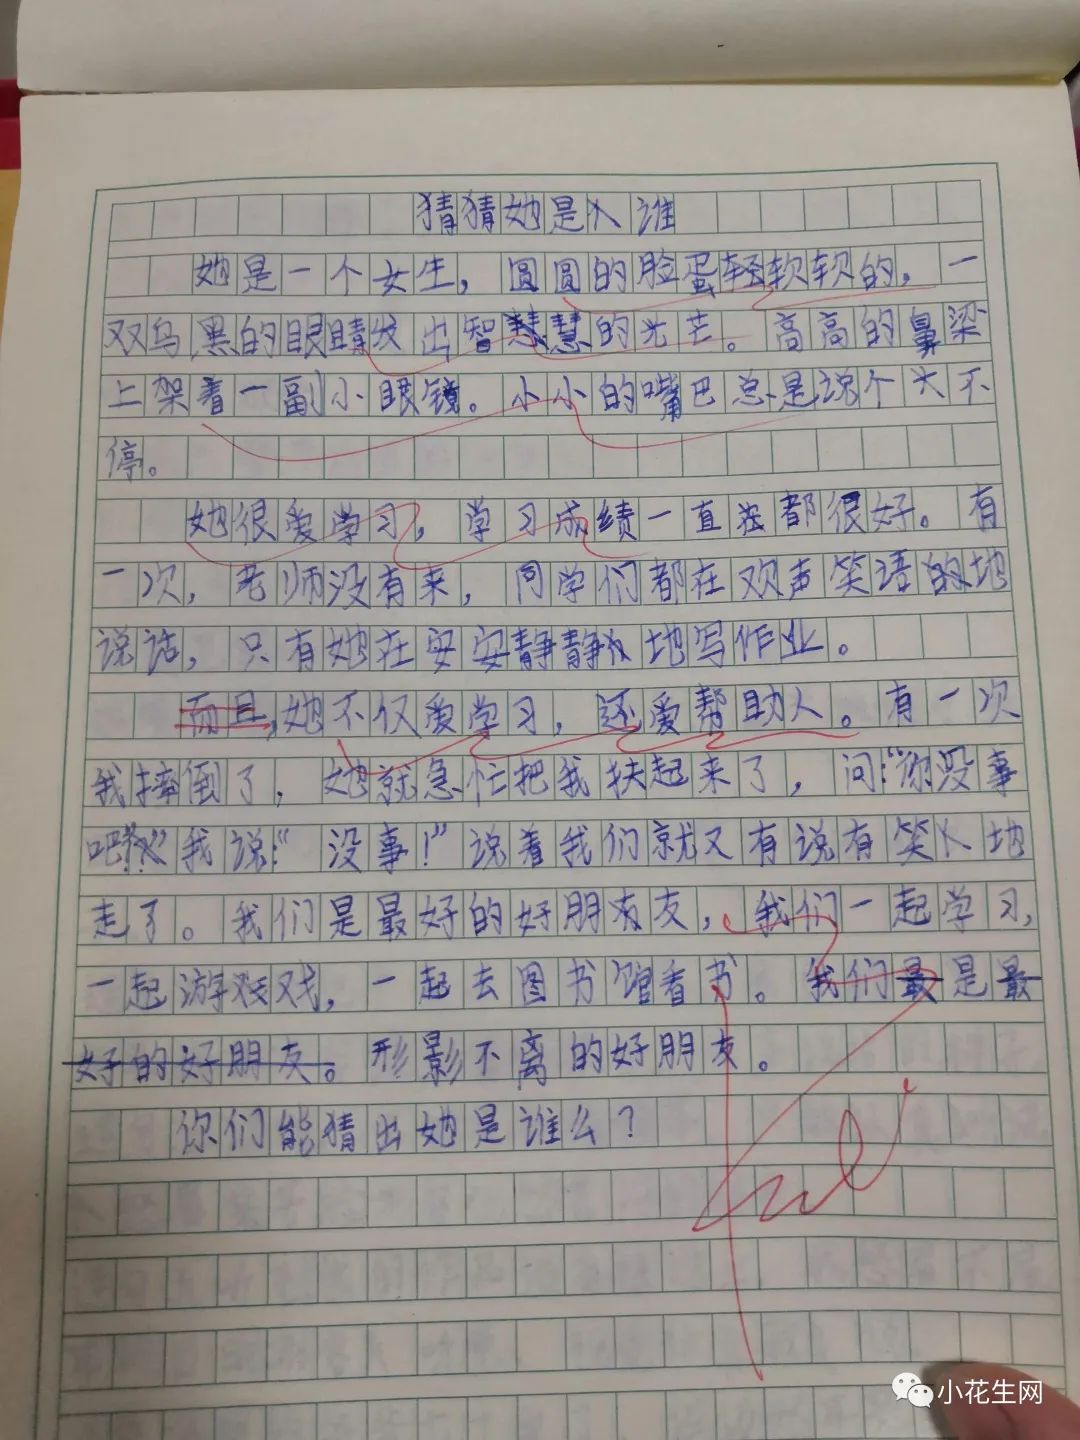 猜猜她是谁
她是一个女生，圆圆的脸蛋轻软软的，一
双乌黑的眼睛发出智慧的光芒。高高的鼻梁
上架着一副小眼镜。小小的嘴巴总是说个大不
停。
她很爱学习，学习成绩一直都很好。有
一次，老师没有来，同学们都在欢声笑语的地
说话，只有她在安安静静地写作业。
而且,她不仅爱学习，还爱帮助人。有一次
我摔倒了，她就急忙把我扶起来了，问：“你没事
吧？”我说：“没事！”说着我们就又有说有笑地
走了。我们是最好的好朋友，我们一起学习，
一起游戏，一起去图书馆看书。我们最是最
好的好朋友。形影不离的好朋友。
你们能猜出她是谁么？
小花生网